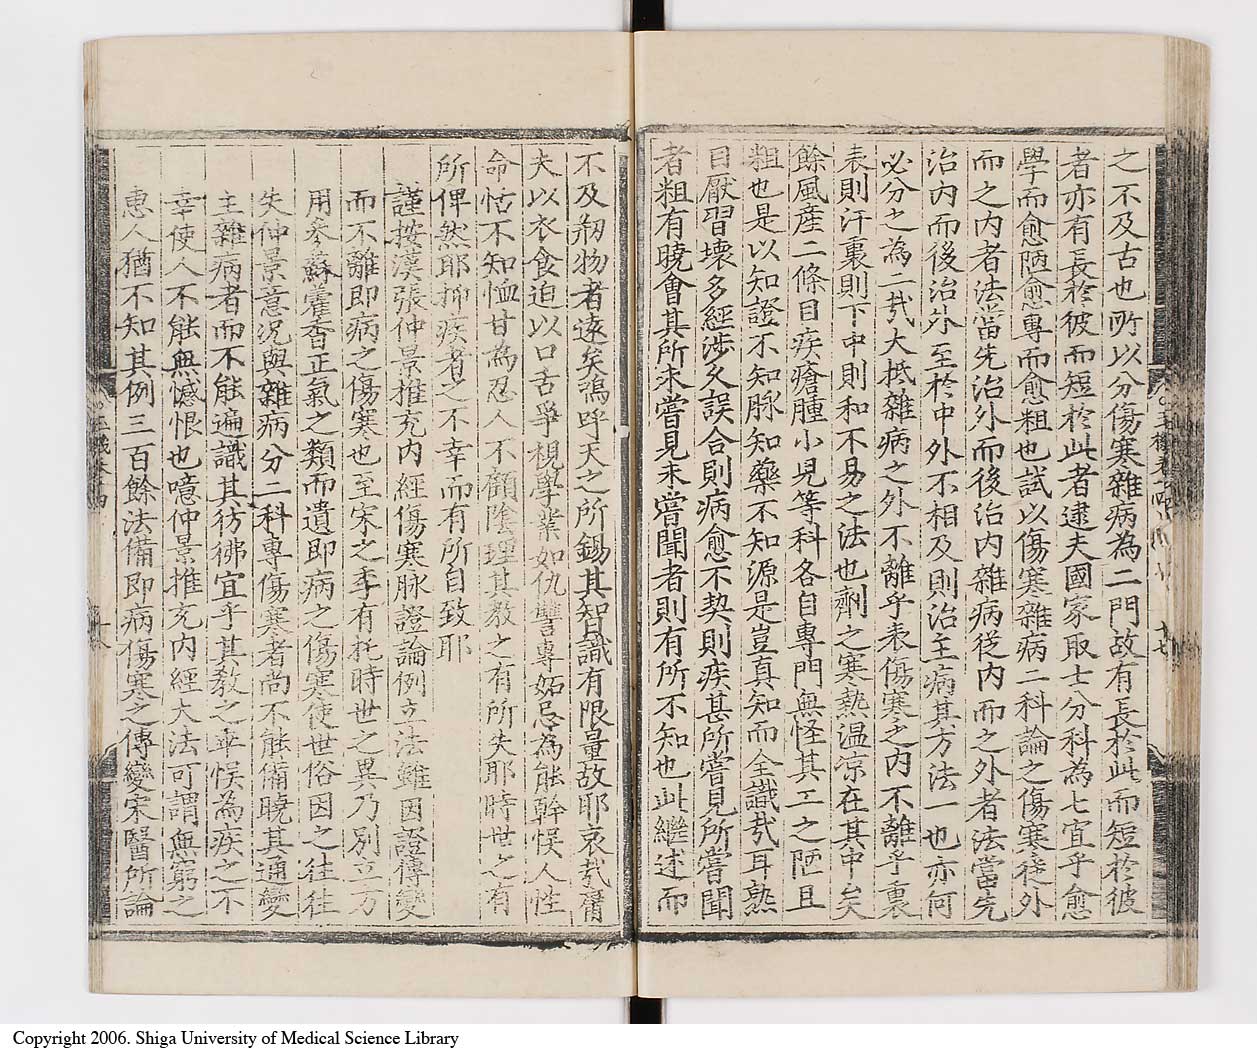 之不及古也所以分傷寒雜病為二門故有長於此而短於彼
者亦有長於彼而短於此者逮夫國家取士分科為七宜乎愈
學而愈陋愈專而愈粗也試以傷寒雜病二科論之傷寒從外
而之內者法當先治外而後治內雜病從內而之外者法當先
治內而後治外至於中外不相及則治主病其方法一也亦何
必分之為二㢤大抵雜病之外不離乎表傷寒之內不離乎裏
表則汗裏則下中則和不易之法也劑之寒熱溫凉在其中矣
餘風産二條目疾瘡腫小兒等科各自專門無怪其工之陋且
粗也是以知證不知脉知藥不知源是豈真知而全識㢤耳熟
目厭習壞多經涉久誤合則病愈不契則疾甚所嘗見所嘗聞
者粗有曉會其所未嘗見未嘗聞者則有所不知也此繼述而
不及剏物者遠矣嗚呼天之所錫其智識有限量故耶哀㢤醫
夫以衣食迫以口舌爭視學業如仇讐專妬忌為能幹悮人性
命恬不知恤甘為忍人不顧陰理其教之有所失耶時世之有
所俾然耶抑疾者之不幸而有所自致耶
謹按漢張仲景推充内經傷寒脉證論例立法雖因證傳變
而不離即病之傷寒也至宋之季有托時世之異乃別立方
用參蘇藿香正氣之類而遺即病之傷寒使世俗因之往往
失仲景意况與雜病分二科專傷寒者尚不能備曉其通變
主雜病者而不能遍識其彷彿宜乎其敎之幸悮為疾之不
幸使人不能無憾恨也噫仲景推充内經大法可謂無窮之
惠人猶不知其例三百餘法備即病傷寒之傳變宋醫所論
十七
十八
Copyright 2006. Shiga University of Medical Science Library